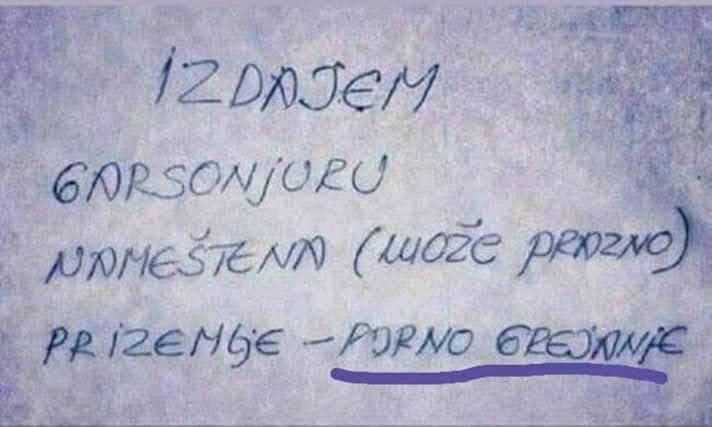 IZDAJEM
GARSONJURU
NAMEŠTENA (MOŽE PRAZNO)
PRIZEMLJE - PORNO GREJANJE